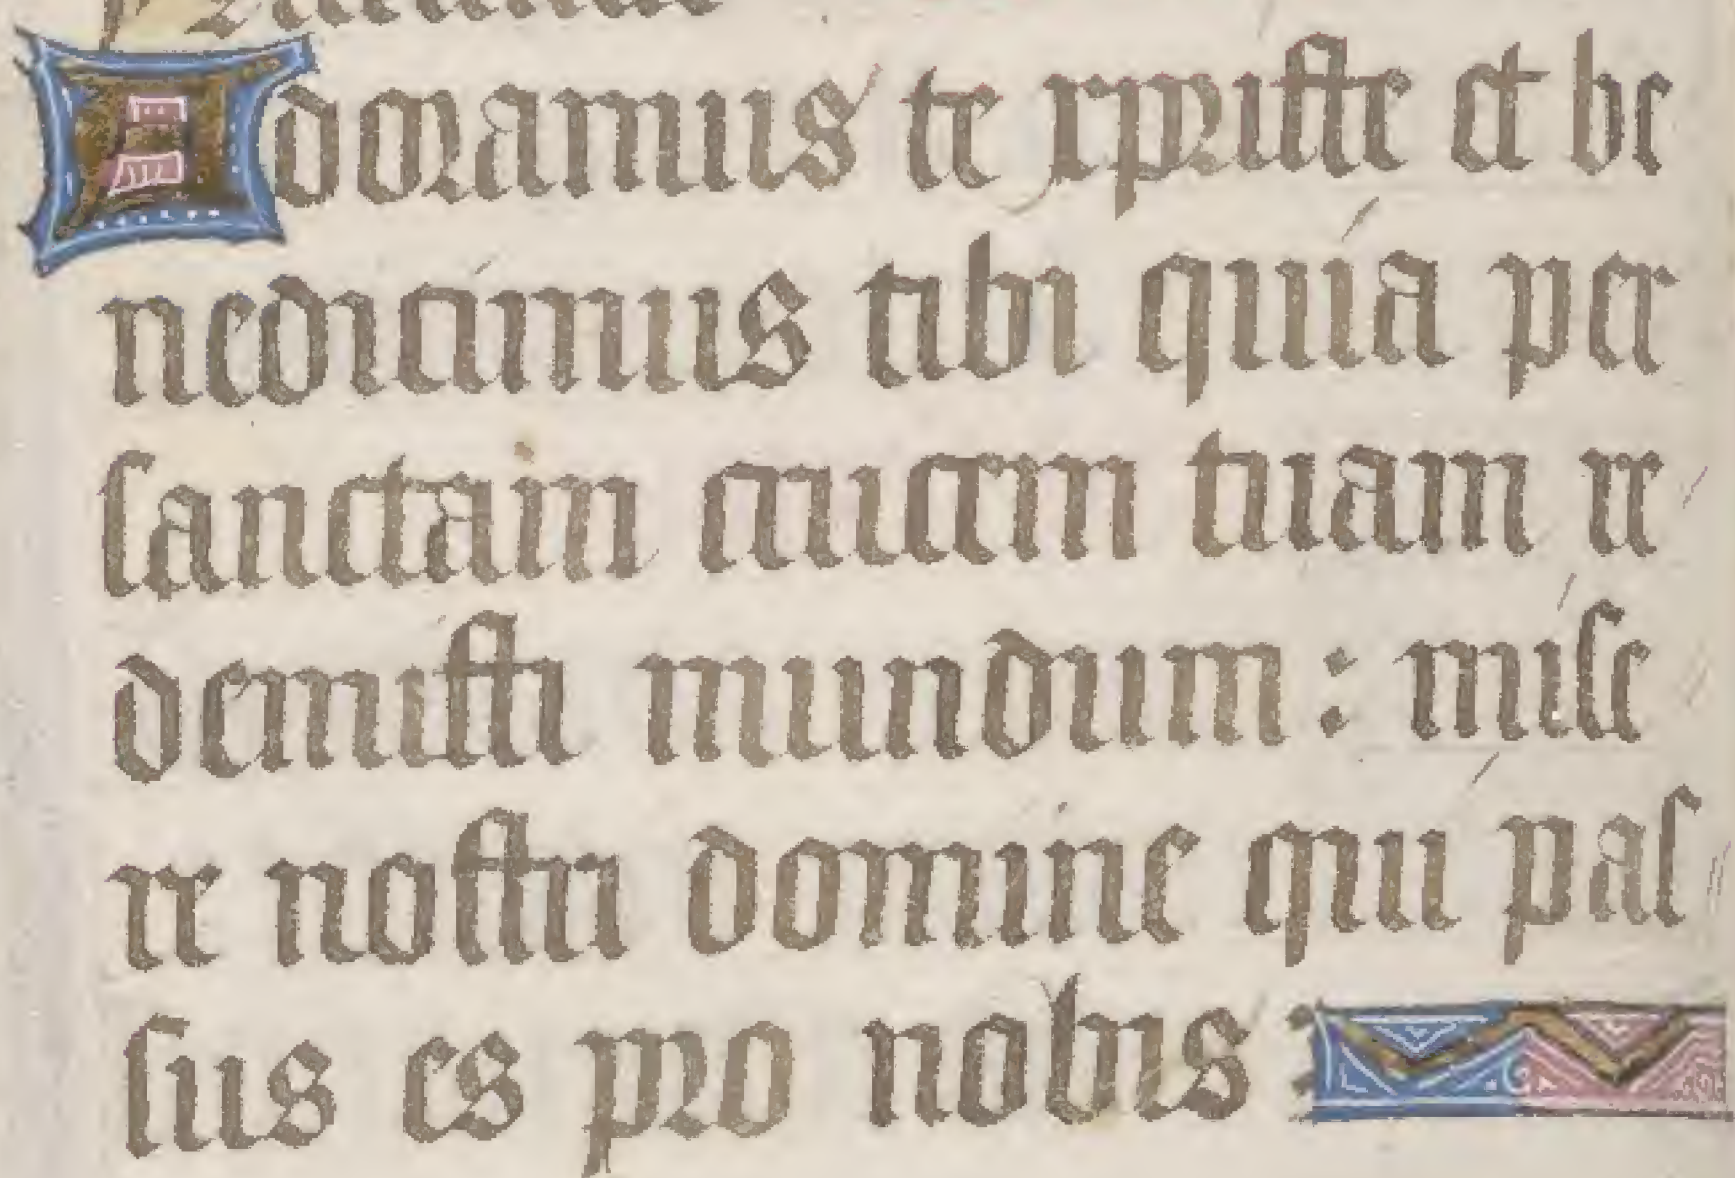 Adoramus te xpriste et be
nedicimus tibi quia per
sanctam crucem tuam re
demisti mundum : mise
re nostri domine qui pas
sus es pro nobis